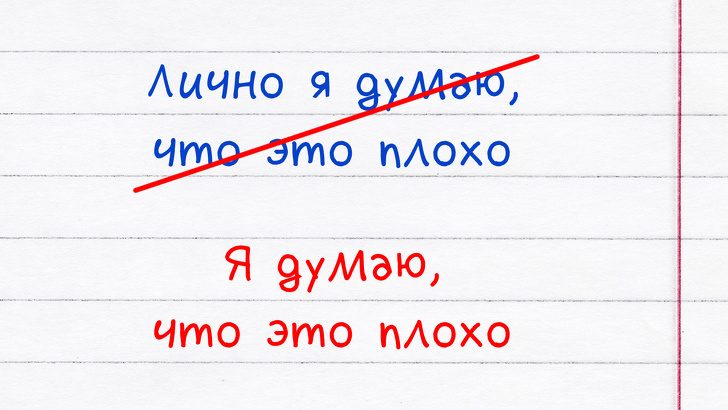 Лично я думаю,
что это плохо
Я думаю,
что это плохо